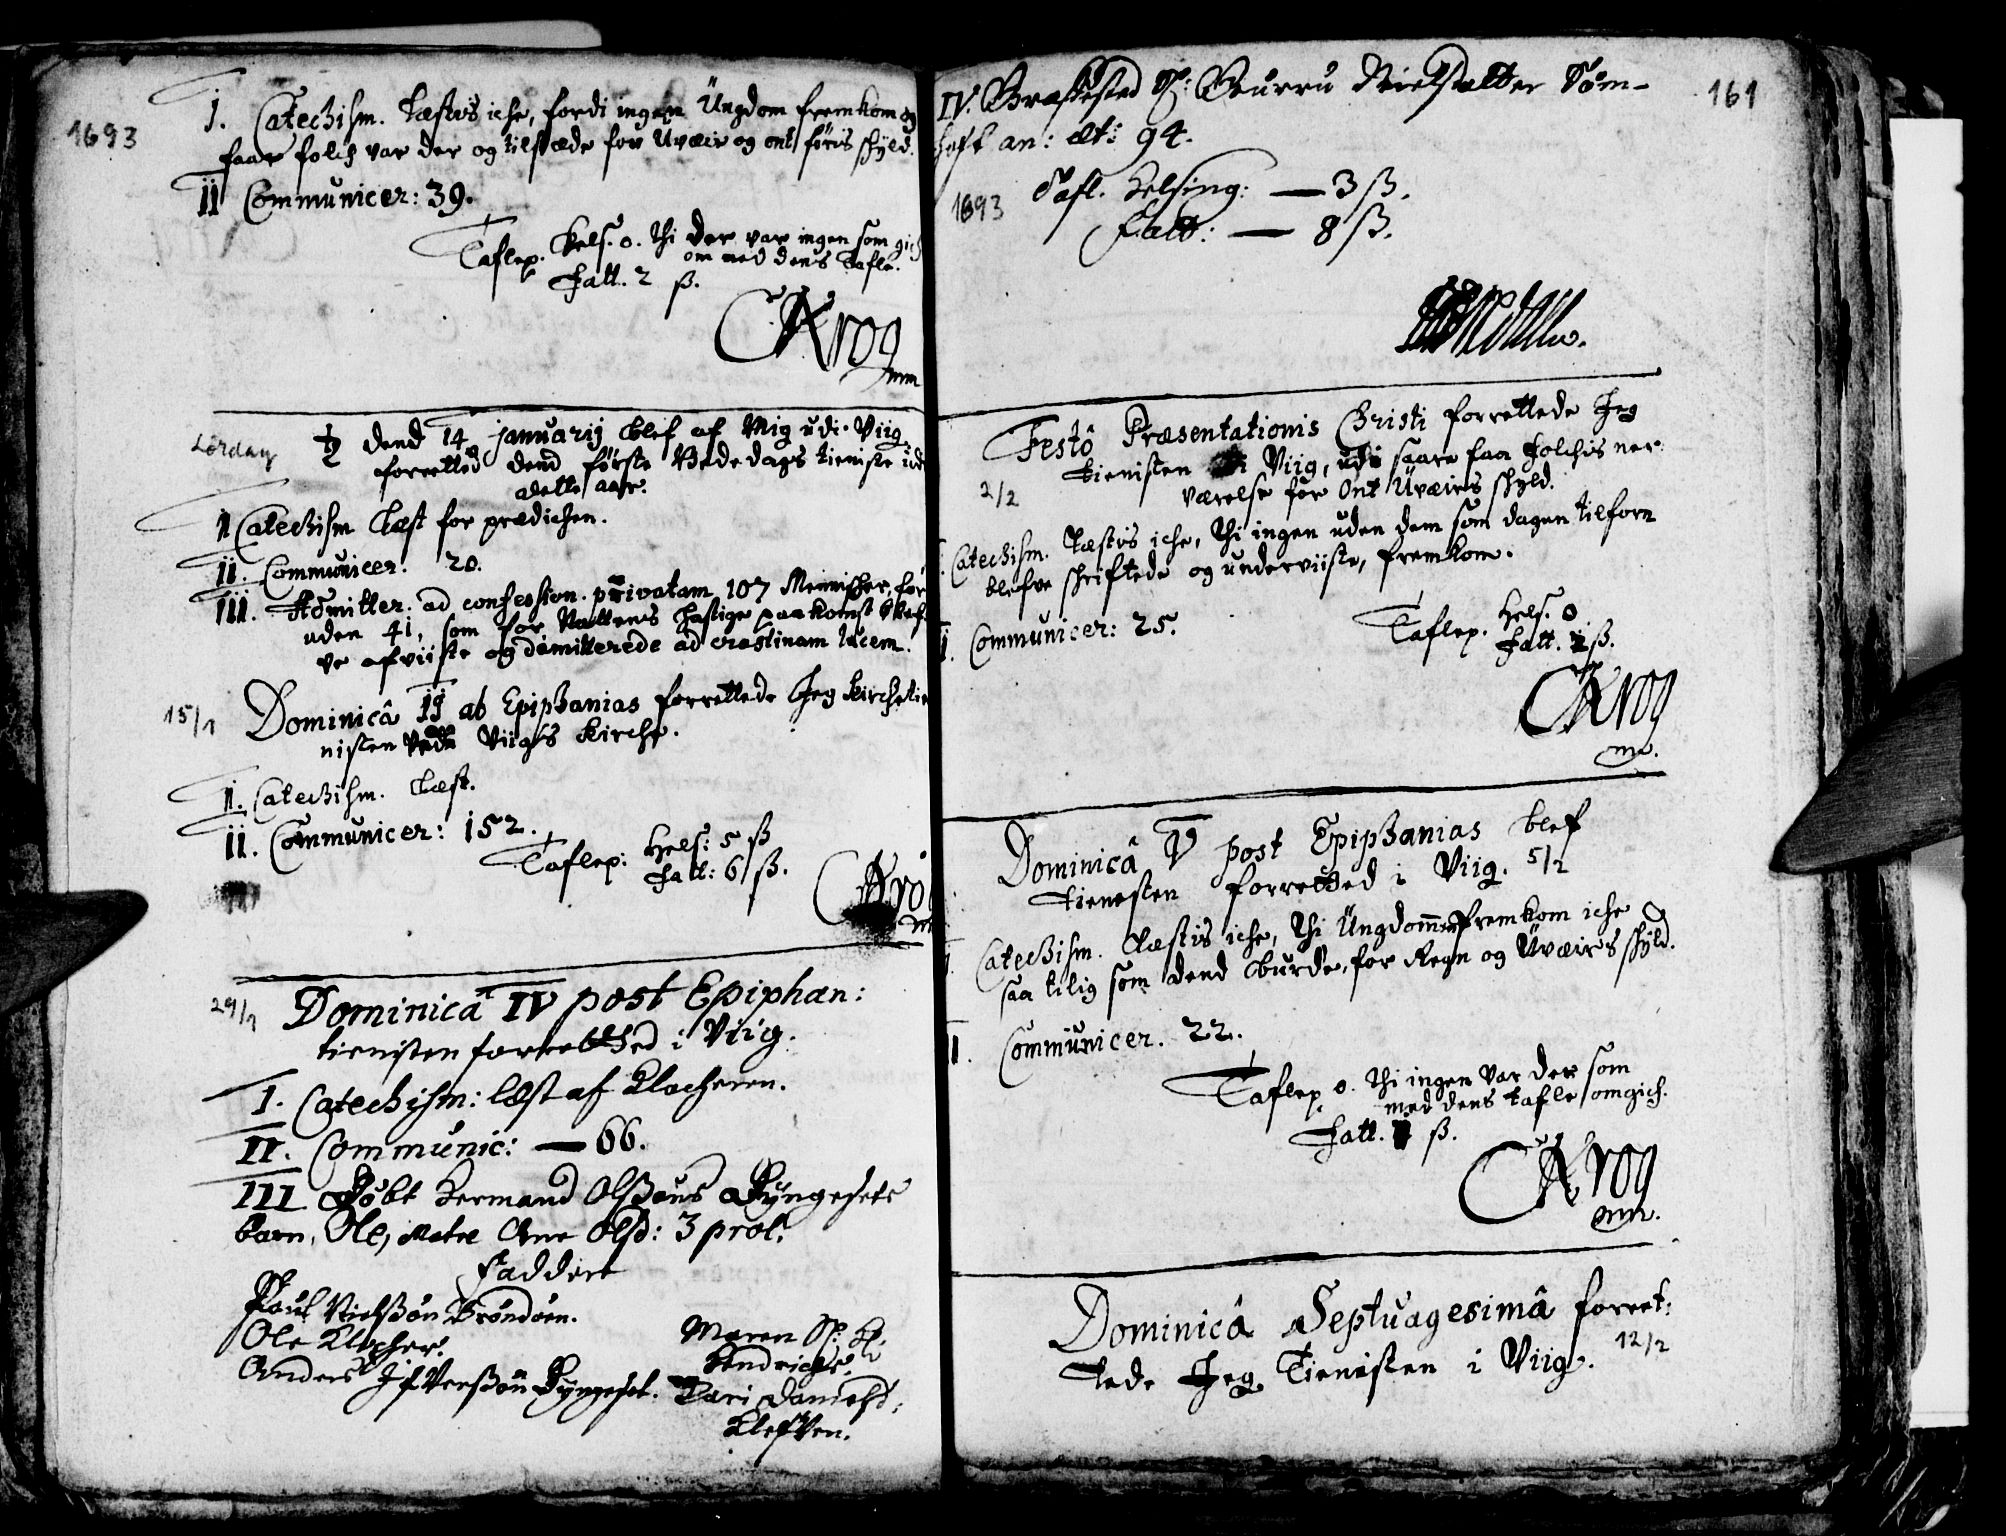 1693
I. Catechism. Læstis iche, fordi ingen Üngdom fremkom og
faar folch var der og tilstæde for Uvæir og ont föris skyld.
II Communicer: 39.
Taflep. Hels. 0. thi der var ingen som gich
om med dens Tafle.
Fatt. 2 ß.
CKrog
mm
Lördag
dend 14 januarij blef af Mig udi Viig
forretted dend förste Bededags tieniste udi
dette aar.
I Catechism Læst for prædichen.
II. Communicer. 20.
III. Admitter. ad confession. privatam 107 Menischer, for
uden 41, som for Nattens hastige paakomst blef
ve afviiste og dimitterede ad crastinam lucem.
15/1
Dominicâ II ab Epiphanias forrettede Jeg kirchetie
nisten Viigs kirche.
I. Catechism. Læst.
II. Communicer: 152.
Taflep: Hels: 5 ß
Fatt: 6 ß.
CKrog
29/1
Dominicâ IV post Epiphan:
tienisten forretted i Viig.
I. Catechism: læst af Klocheren.
II. Communic: — 66.
III Döbt Hermand Olßöns Ryngesets
barn, Ole, Matre Ane Olsd: 3 prol.
Faddere
Paul Nielßön Bröndöen.
Ole Klocher.
Anders Ifverßön Ryngeset.
Maren Sl:
Hendrichs.
Kari Danielsd:
Klefven.
161
IV. Gravfested Sl: Gurru Nielsdatter Töm-
hoft an: æt: 94.
1693
Tafl. Helsing: — 3 ß.
Fatt: — 8 ß.
Festô Præsentationis Christi forrettede Jeg
tienisten i Viig, udi saare faa folchis ner-
værelse for Ont Uvæirs skyld.
2/2
I. Catechism. Læstis iche, thi ingen uden dem som dagen tilforn
blefve skriftede og underviiste, fremkom.
II. Communicer: 25.
Taflep. Hels. 0
Fatt. ß.
CKrog
mm.
Dominicâ V post Epiphanias blef
tienesten forretted i Viig. 5/2
I. Catechism. Læstis iche, thi Üngdommen fremkom iche
saa tilig som dend burde, for Regn og Uvæirs skyld.
II. Communicer. 22.
Taflep 0. thi ingen var der som
med dens tafle omgich.
Fatt. ß.
CKrog
mm.
Dominicâ Septuagesimâ forret-
tede Jeg Tienisten i Viig. 12/2